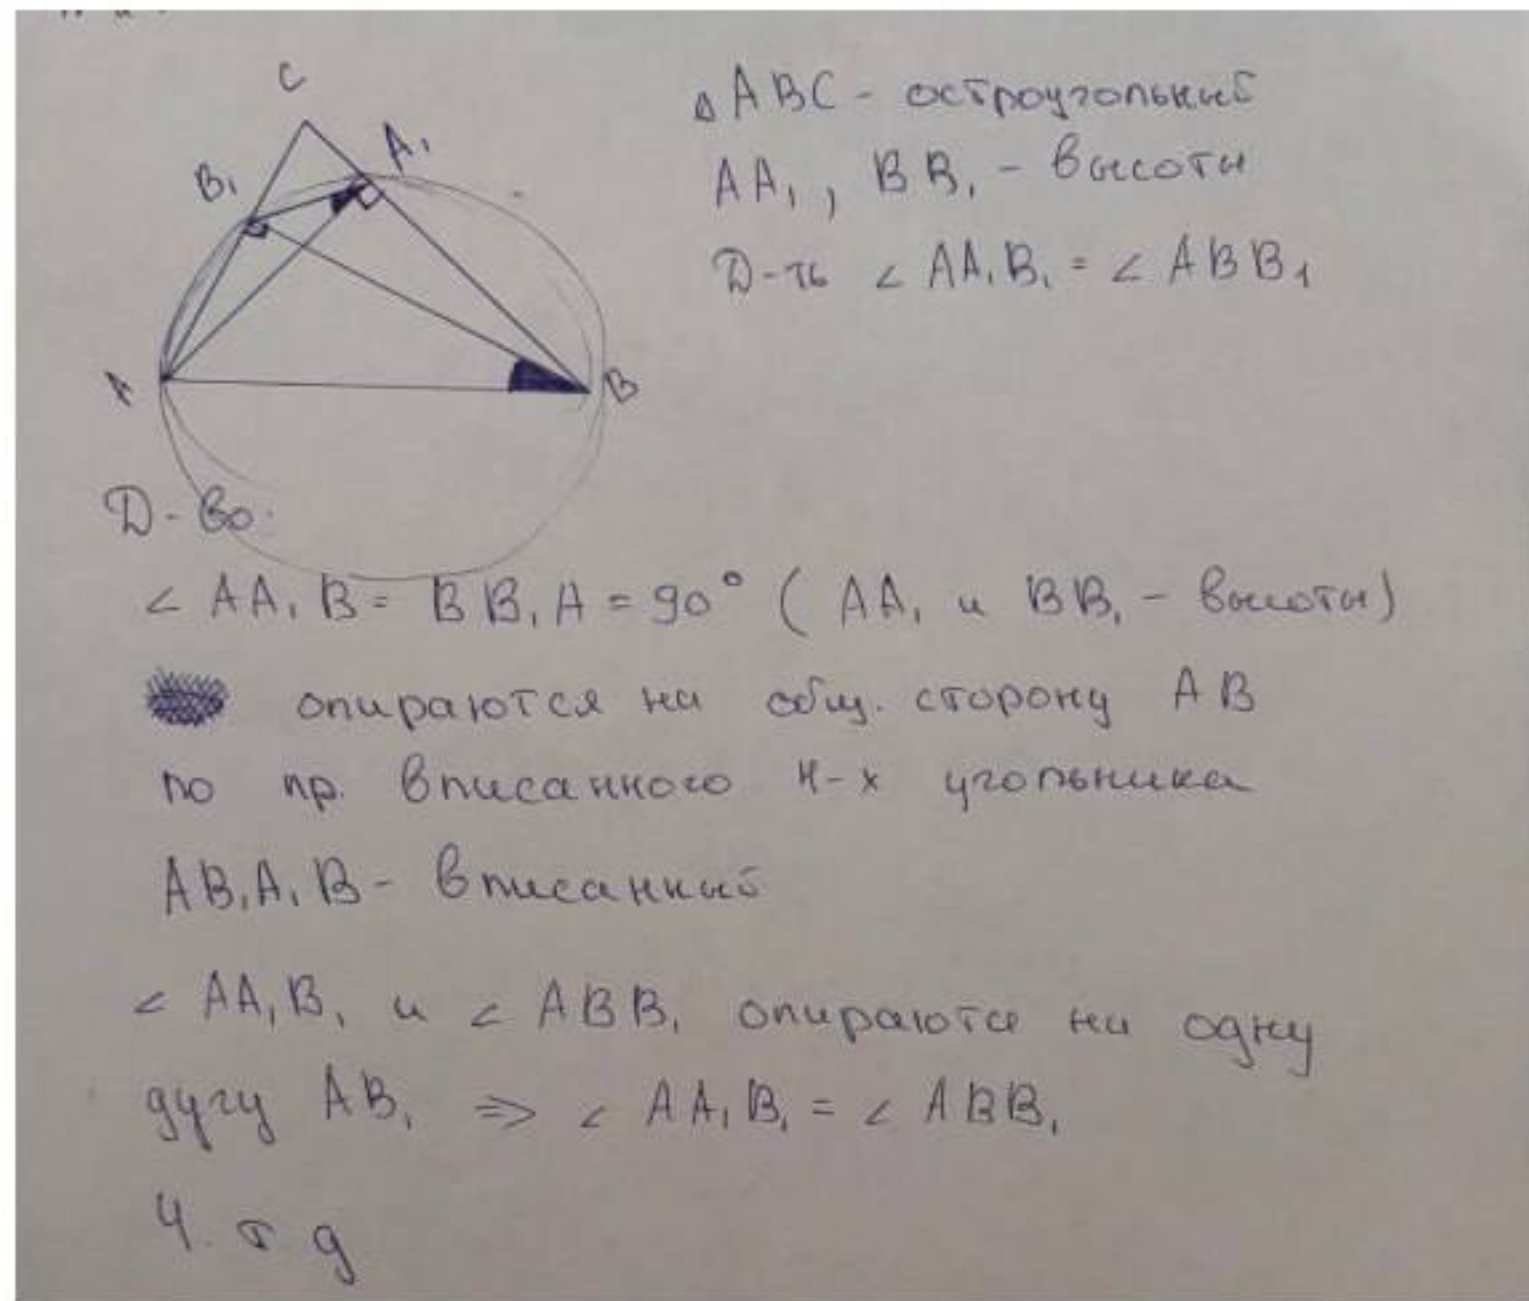 C
A₁
B₁
A
B
△ ABC - остроугольный
AA₁, BB₁ - высоты
Д-ть ∠ AA₁B₁ = ∠ ABB₁
Д-во:
∠ AA₁B = BB₁A = 90° (AA₁ и BB₁ - высоты)
опираются на общ. сторону AB
по пр. вписанного 4-х угольника
AB₁A₁B - вписанный
∠ AA₁B₁ и ∠ ABB₁ опираются на одну
дугу AB₁ => ∠ AA₁B₁ = ∠ ABB₁
Ч. т д